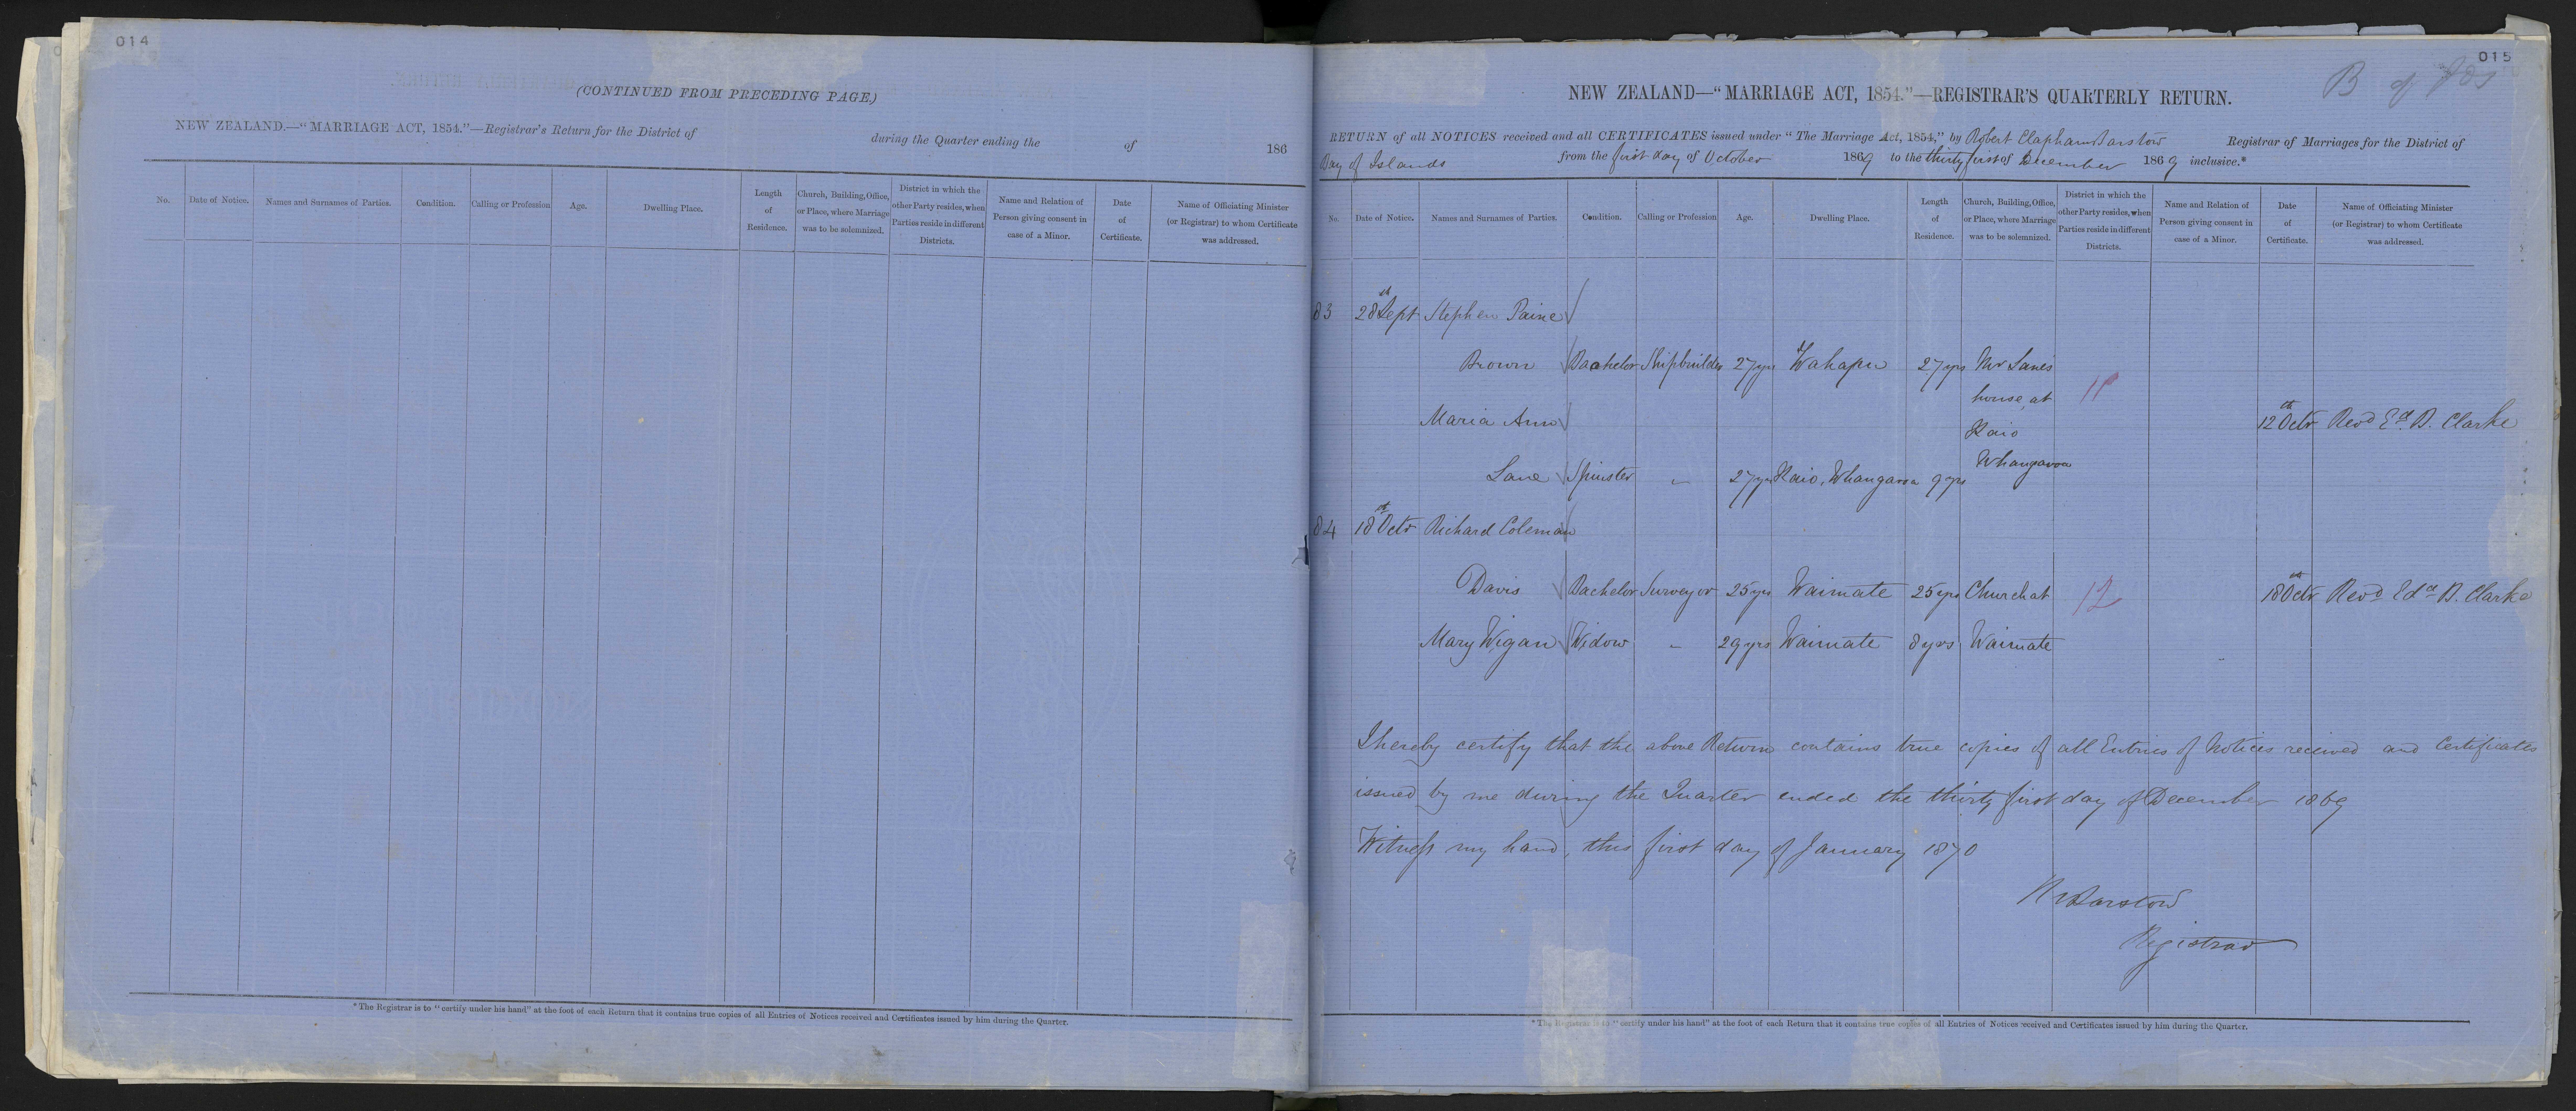 014
(CONTINUED FROM PRECEDING PAGE.)
NEW ZEALAND.—"MARRIAGE ACT, 1854."—Registrar's Return for the District of during the Quarter ending the of 186
No. Date of Notice. Names and Surnames of Parties. Condition. Calling or Profession Age. Dwelling Place. Length of Residence. Church, Building, Office, or Place, where Marriage was to be solemnized. District in which the other Party resides, when Parties reside in different Districts. Name and Relation of Person giving consent in case of a Minor. Date of Certificate. Name of Officiating Minister (or Registrar) to whom Certificate was addressed.
*The Registrar is to "certify under his hand" at the foot of each Return that it contains true copies of all Entries of Notices received and Certificates issued by him during the Quarter.
015
B of Ids
NEW ZEALAND—"MARRIAGE ACT, 1854."—REGISTRAR'S QUARTERLY RETURN.
RETURN of all NOTICES received and all CERTIFICATES issued under "The Marriage Act, 1854," by Robert Clapham Barstow Registrar of Marriages for the District of
Bay of Islands from the first day of October 1869 to the thirty first of December 1869 inclusive.*
No. Date of Notice. Names and Surnames of Parties. Condition. Calling or Profession Age. Dwelling Place. Length of Residence. Church, Building, Office, or Place, where Marriage was to be solemnized. District in which the other Party resides, when Parties reside in different Districts. Name and Relation of Person giving consent in case of a Minor. Date of Certificate. Name of Officiating Minister (or Registrar) to whom Certificate was addressed.
83 28th Sept Stephen Paine
Brown Bachelor Shipbuilder 27 yrs Wahapu 27 yrs Mr Lanes
house, at 11
Maria Ann Kaio 12th Octr Revd Ed. B. Clarke
Lane Spinster " 27 yrs Kaio, Whangaroa 9 yrs Whangaroa
84 18th Octr Richard Coleman
Davis Bachelor Surveyor 25 yrs Waimate 25 yrs Church at 12 18th Octr Revd Edd B. Clarke
Mary Wigan Widow " 29 yrs Waimate 8 yrs Waimate
I hereby certify that the above Return contains true copies of all Entries of Notices received and Certificates
issued by me during the Quarter ended the thirty first day of December 1869
Witness my hand, this first day of January 1870
R C Barstow
Registrar
*The Registrar is to "certify under his hand" at the foot of each Return that it contains true copies of all Entries of Notices received and Certificates issued by him during the Quarter.